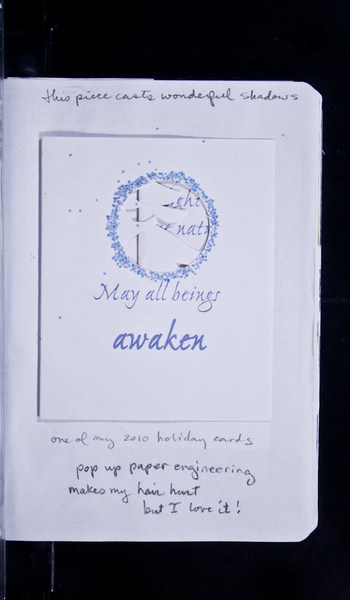 this piece casts wonderful shadows
May all beings
awaken
one of my 2010 holiday cards
pop up paper engineering
makes my hair hurt
but I love it!